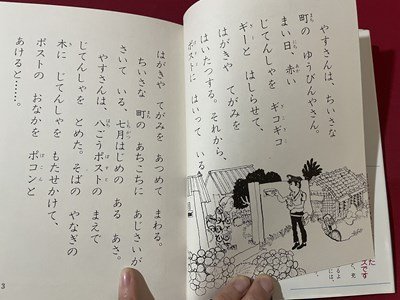 やすさんは、ちいさな
町の ゆうびんやさん。
まい日、赤い
じてんしゃを ギコギコ
ギーと はしらせて、
はがきや てがみを
はいたつする。それから、
ポストに はいって いる
はがきや てがみを あつめて まわる。
ちいさな 町の あちこちに あじさいが
さいて いる、七月はじめの ある あさ。
やすさんは、八ごうポストの まえで
じてんしゃを とめた。そばの やなぎの
木に じてんしゃを もたせかけて、
ポストの おなかを ポコンと
あけると……。
3